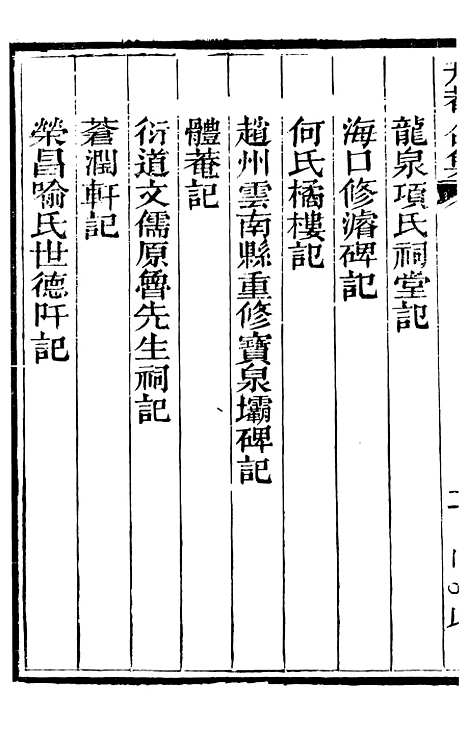 龍泉項氏祠堂記
海口修濬碑記
何氏橘樓記
趙州雲南縣重修寶泉壩碑記
體菴記
衍道文儒原魯先生祠記
蒼潤軒記
榮昌喻氏世德阡記